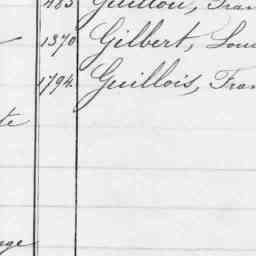 483 Guillou, Fran
1370 Gilbert, Lou
1794. Guillois, Fran
te
age